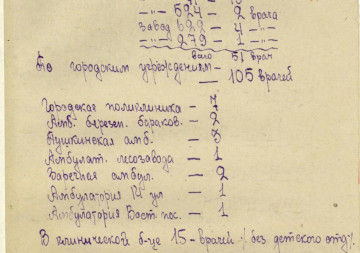 -"- 524 - 2 врача
Завод 622 - 4 -"-
-"- 279 - 1 -"-
всего 51 врач
По городским учреждениям -
- 105 врачей
Городская поликлиника - 7
Амб. березен. бараков. - 2
Пушкинская амб. - 3
Амбулат. лесозавода - 1
Заречная амбул. - 2
Амбулатория ул - 1
Амбулатория Вост. пос. - 1
В клинической б-це 15 - врачей /без детского отд/